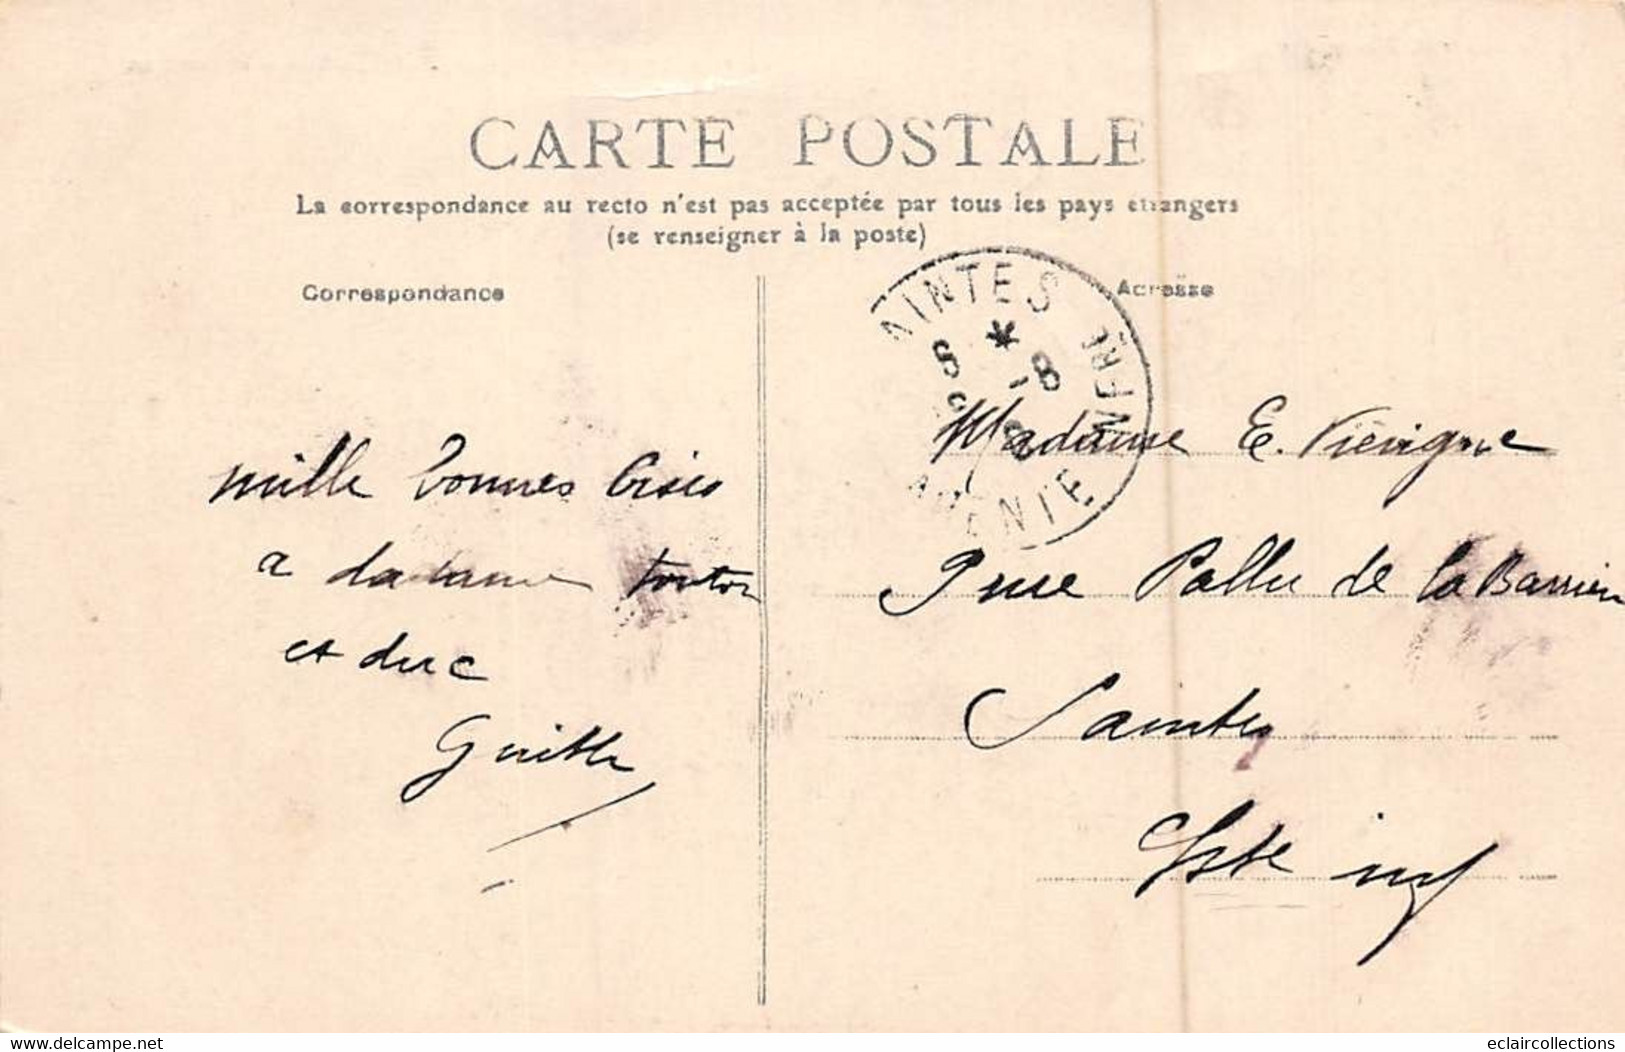 CARTE POSTALE
La correspondance au recto n'est pas acceptée par tous les pays étrangers
(se renseigner à la poste)
Correspondance
Adresse
AINTES
* 8
-8
ENTE INFRE
mille bonnes bises
a tonton
et duc
Guitte
Madame E. Viévigne
9 rue Pallu de la Barrière
Saintes
Chte inf
www.delcampe.net
eclaircollections